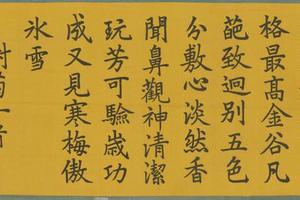 格最高金谷凡
葩致迥别五色
分敷心淡然香
聞鼻觀神清潔
玩芳可驗歲功
成又見寒梅傲
氷雪
對菊一首